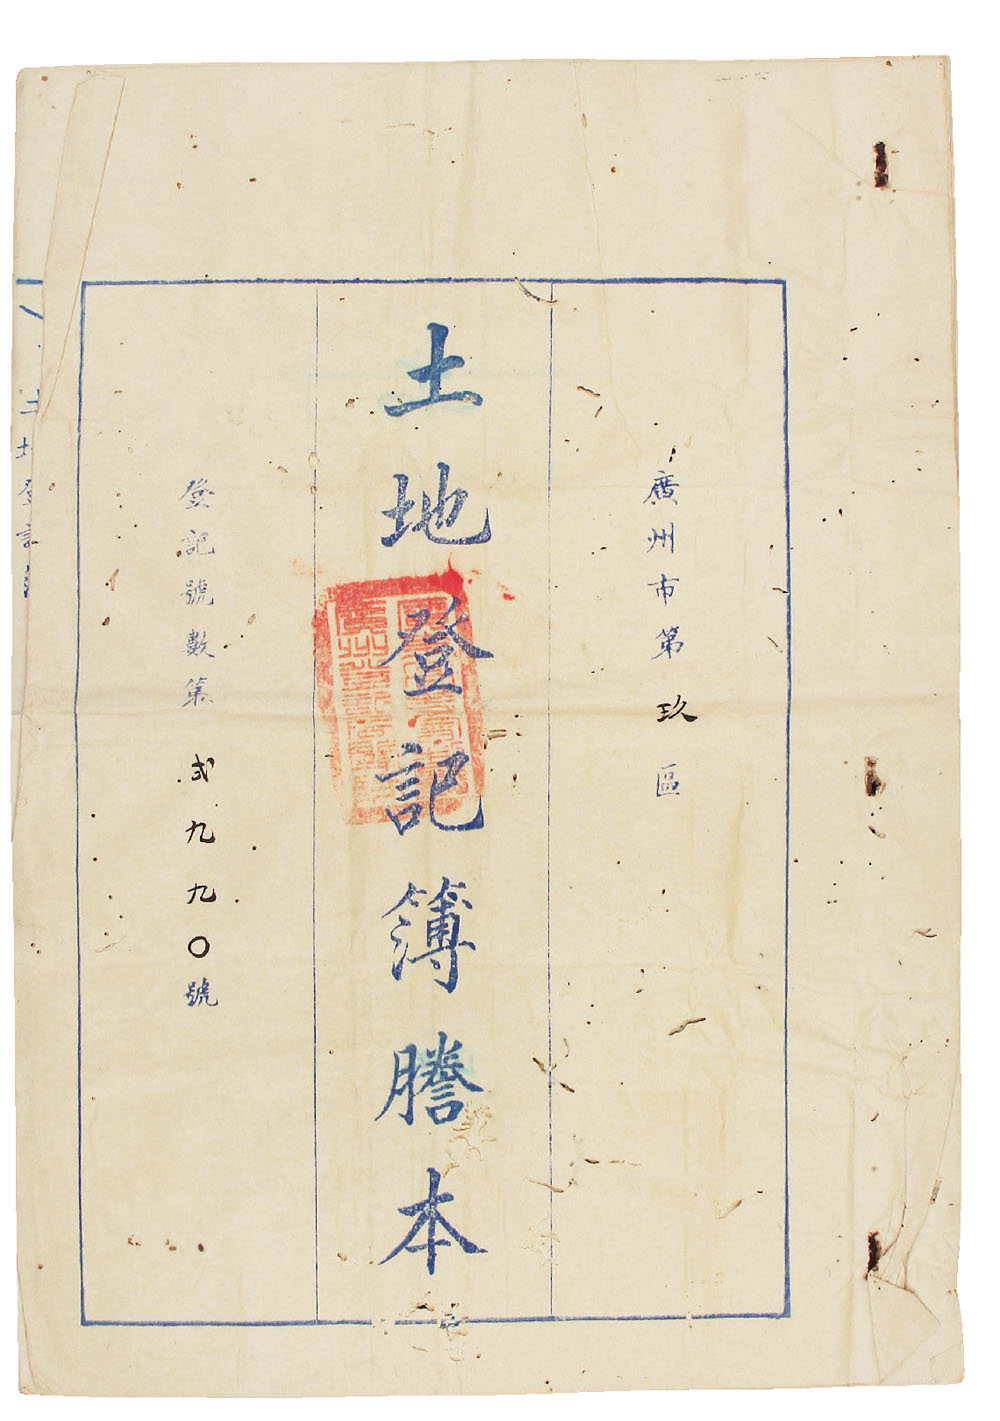 廣州市第玖區
土地登記簿謄本
登記號數第弍九九〇號
土地登記